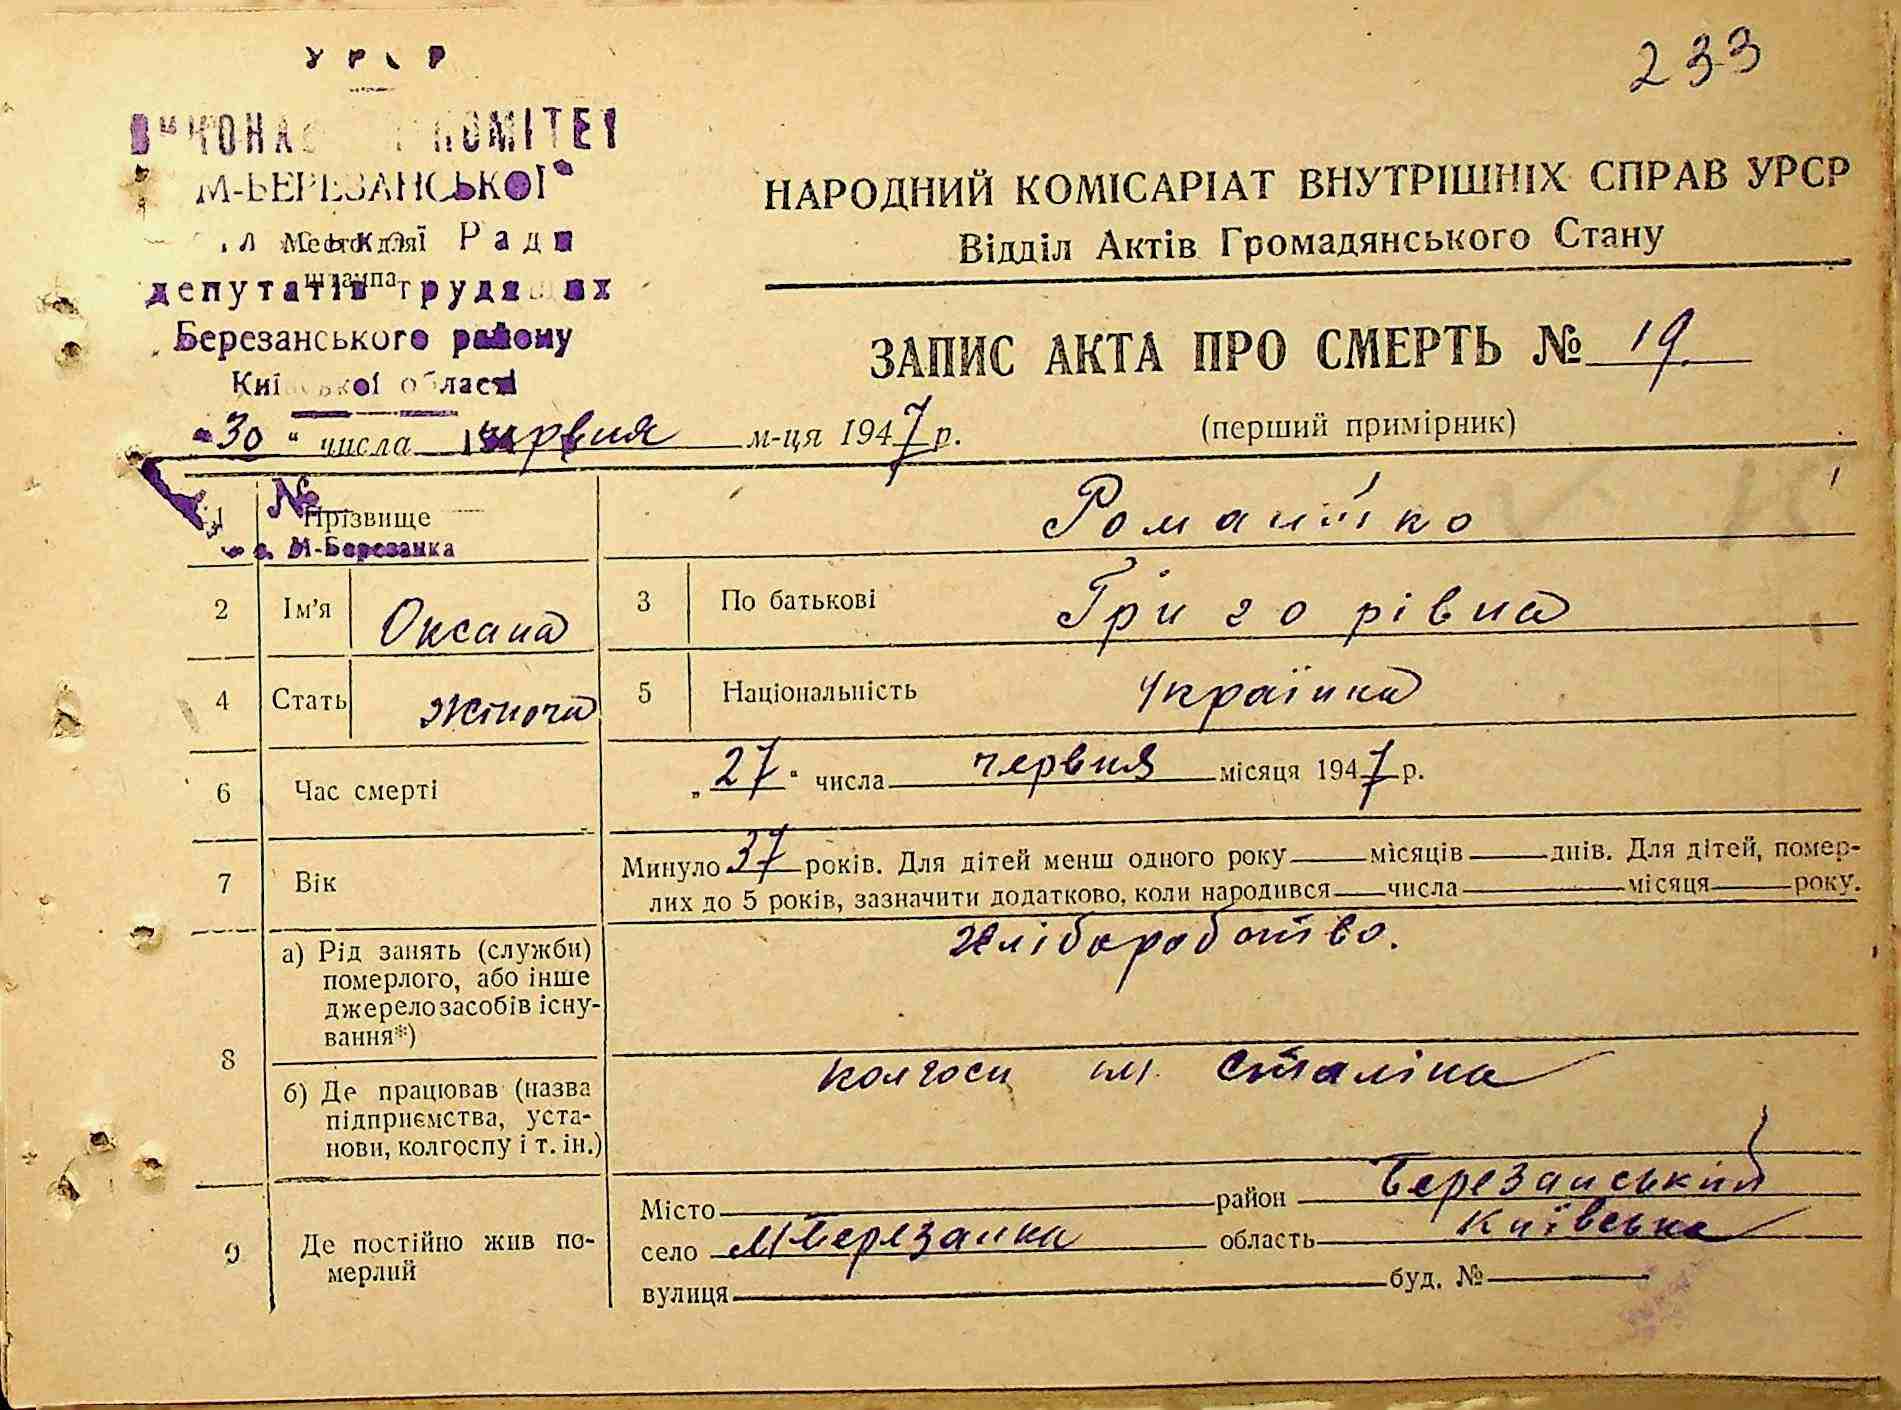 УРСР
233
ВИКОНАВЧИЙ КОМІТЕТ
М-БЕРЕЗАНСЬКОЇ
Ради
Місце для
штампа
депутатів трудящих
Березанського району
Київської області
НАРОДНИЙ КОМІСАРІАТ ВНУТРІШНІХ СПРАВ УРСР
Відділ Актів Громадянського Стану
ЗАПИС АКТА ПРО СМЕРТЬ № 19
„30“ числа червня м-ця 1947 р.
(перший примірник)
№
Прізвище
с. М-Березанка
Романько
2 Ім'я Оксана 3 По батькові Григорівна
4 Стать жіноча 5 Національність Українка
6 Час смерті „27“ числа червня місяця 1947 р.
7 Вік Минуло 37 років. Для дітей менш одного року місяців днів. Для дітей, помер-
лих до 5 років, зазначити додатково, коли народився числа місяця року.
8 а) Рід занять (служби)
померлого, або інше
джерело засобів існу-
вання*)
Хлібаробство.
б) Де працював (назва
підприємства, уста-
нови, колгоспу і т. ін.)
колгосп ім. Сталіна
9 Де постійно жив по-
мерлий
Місто район Березанський
село МБерезанка область Київська
вулиця буд. №